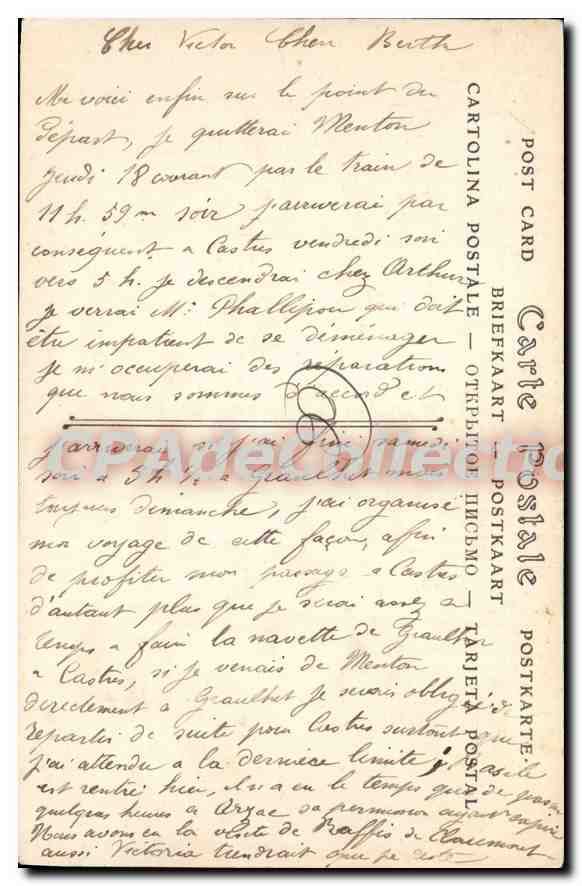 Cher Victor Cher Berthe
Me voici enfin sur le point du
départ, je quitterai Menton
jeudi 18 courant par le train de
11 h. 59 m soir j'arriverai par
conséquent a Castres vendredi soir
vers 5 h. je descendrai chez Arthur
je verrai Mr Phallipou qui doit
être impatient de se déménager
je m'occuperai des réparations
que nous sommes d'accord et
j'arriverai si j'ai fini samedi
soir a 5 h ½ a Graulhet mais
toujours dimanche, j'ai organisé
mon voyage de cette façon, afin
de profiter mon passage a Castres
d'autant plus que je serai assez a
temps a faire la navette de Graulhet
a Castres, si je venais de Menton
directement a Graulhet je serais obligé de
repartir de suite pour Castres surtout que
j'ai attendu a la dernière limite,
est rentré hier, il n'a eu le temps que de passer
quelques heures a sa permission ayant expiré
Nous avons eu la visite de Raffis de Claumont
aussi Victoria tiendrait que je reste
POST CARD Carte Postale POSTKARTE.
BRIEFKAART — POSTKAART
CARTOLINA POSTALE — ОТКРЫТОЕ ПИСЬМО — TARJETA POSTAL
CPAdeCollection